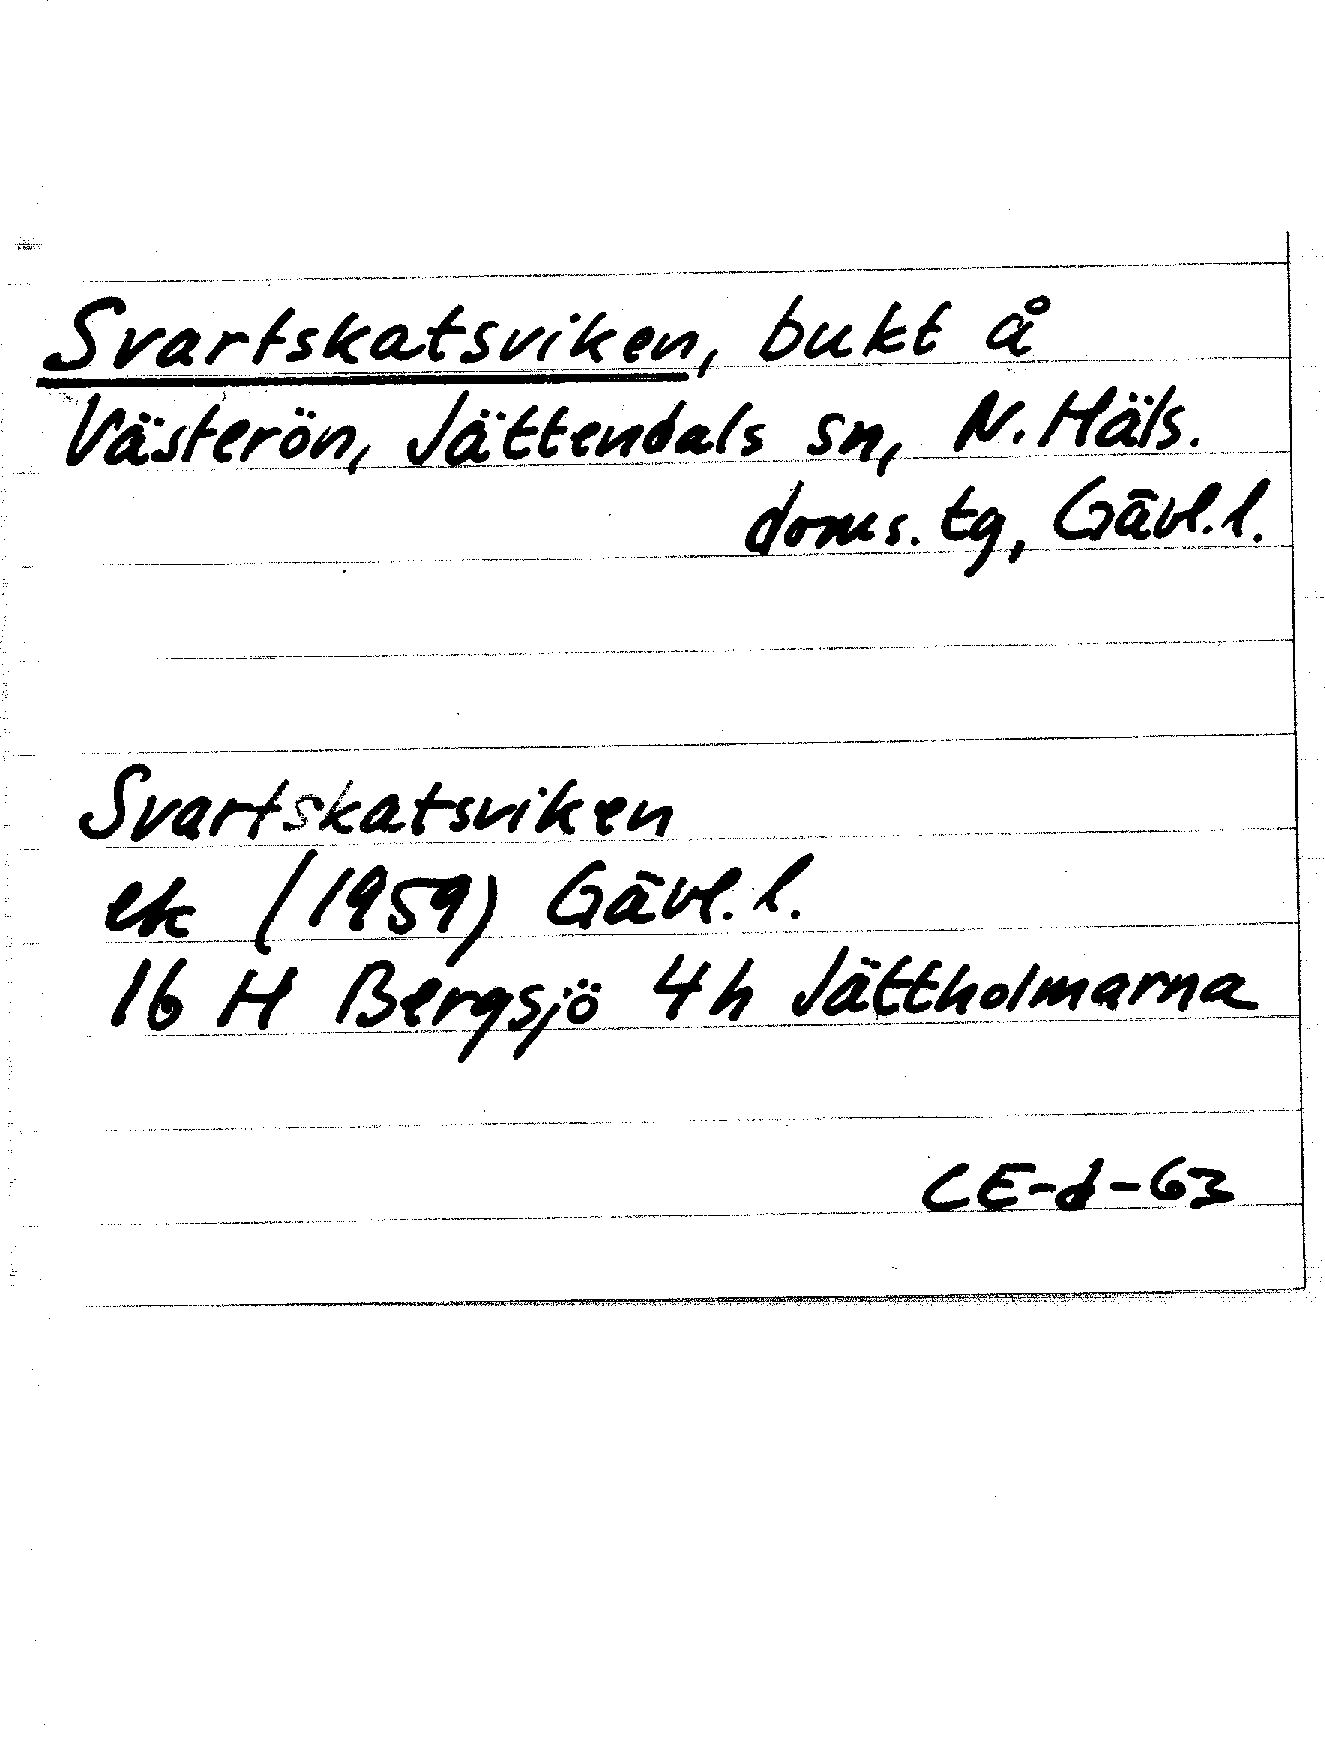 Svartskatsviken, bukt å
Västerön, Jättendals sn, N. Häls.
doms. tg, Gävl. l.
Svartskatsviken
ek (1959) Gävl. l.
16 H Bergsjö 4h Jättholmarna
CE-d-63